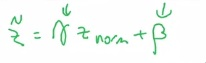 z̃ = γ z norm + β